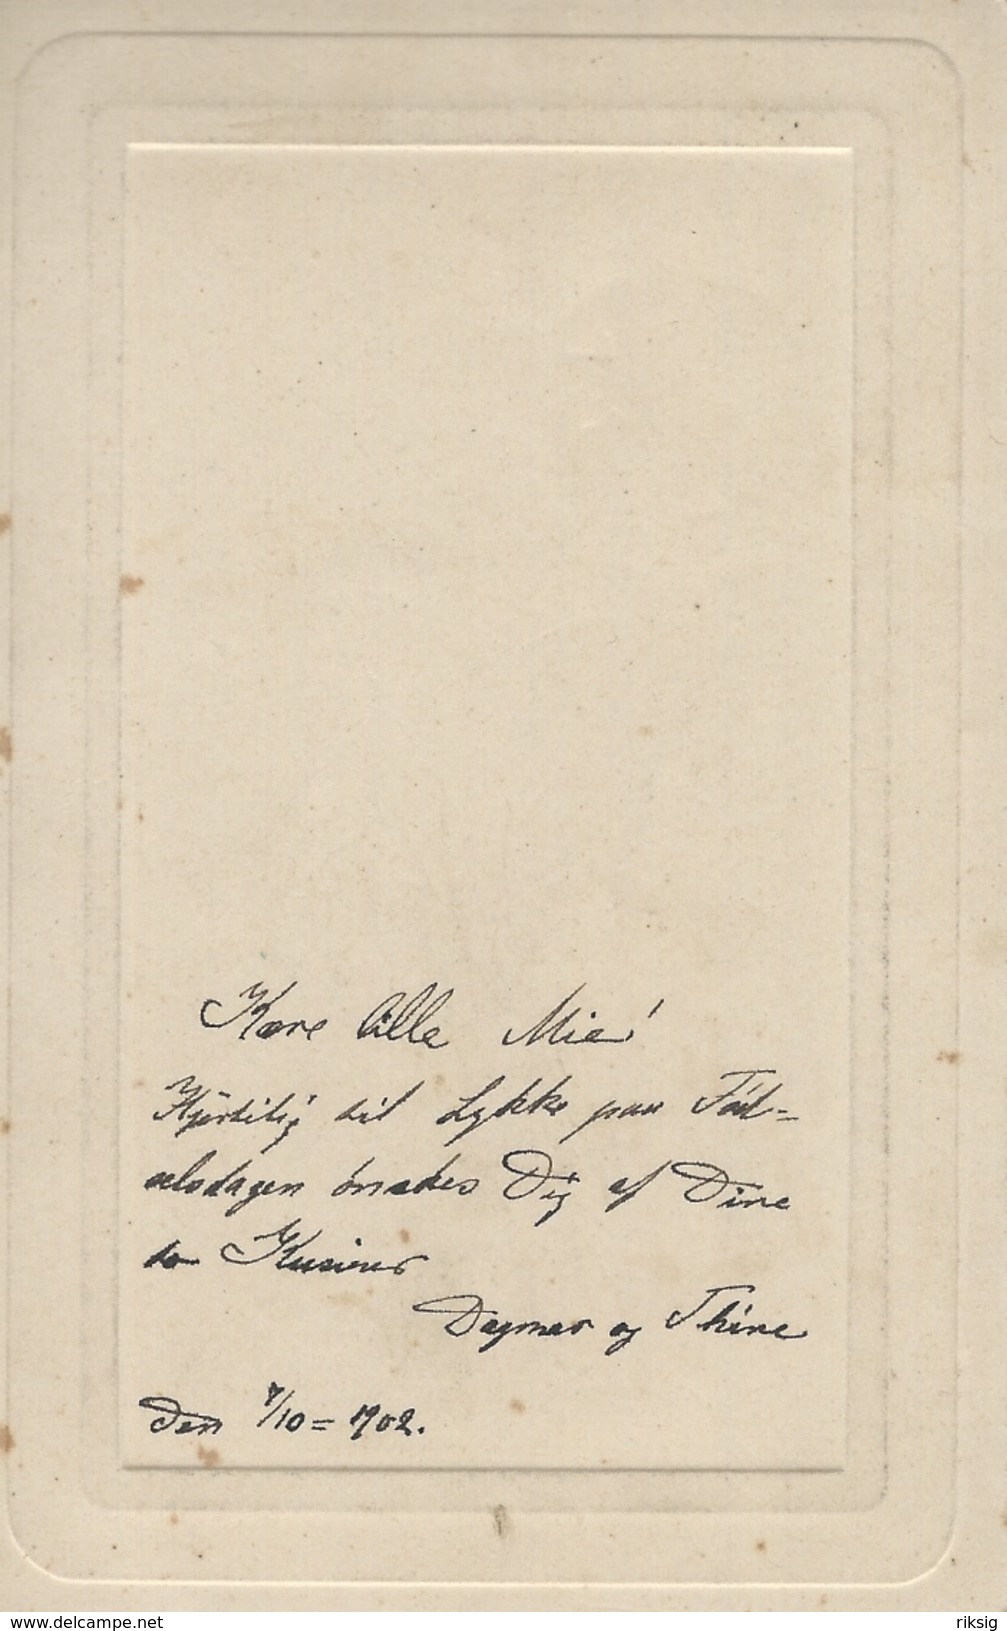 Kære lille Mie!
Hjertelig til Lykke paa Fød=
selsdagen ønskes Dig af Dine
to Kusiner
Dagmar og Thine
Den 7/10 = 1902.
www.delcampe.net
riksig